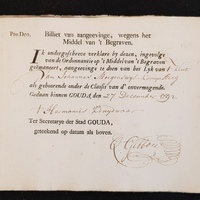 PRO DEO.
Billiet van aangeevinge, wegens het
Middel van 't Begraven.
Ik ondergeschreve verklare by dezen, ingevolge
van de Ordonnantie op 't Middel van 't Begraven
geëmaneert, aangeevinge te doen van het Lyk van
van Johannes
als gehoorende onder de Classis van d' onvermogende.
Gedaan binnen GOUDA, den 27 December 1792
Hermanus
Ter Secretarye der Stad GOUDA,
geteekend op datum als boven.